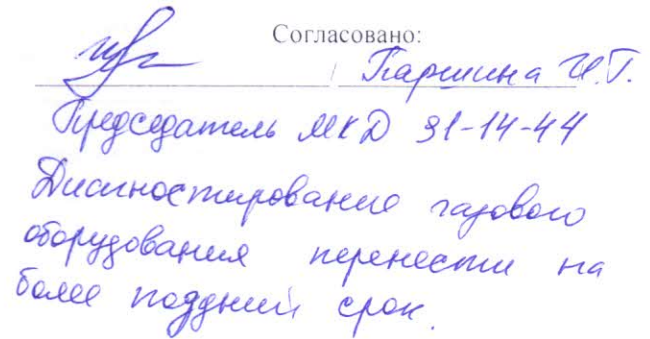 Согласовано:
/ Паршина И.Г.
Председатель МКД 31-14-44
Диагностирование газового
оборудования перенести на
более поздний срок.